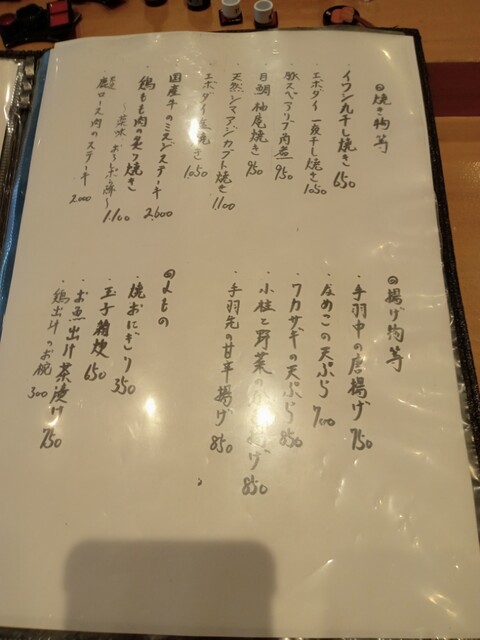 ◎焼き物等
・イワシ丸干し焼き 650
・エボダイ一夜干し焼き 1050
・豚スペアリブ角煮 950
・目鯛 柚庵焼き 950
・天然シマアジカブト焼き 1,100
・エボダイ 焼き 1050
・国産牛のミスジステーキ 2,600
・鶏もも肉の炙り焼き
～薬味おろしポン酢～ 1,100
・鹿ロース肉のステーキ 2000
◎揚げ物等
・手羽中の唐揚げ 750
・なめこの天ぷら 700
・ワカサギの天ぷら 850
・小柱と野菜のかき揚げ 850
・手羽先の甘辛揚げ 850
◎〆もの
・焼おにぎり 350
・玉子雑炊 650
・お魚出汁茶漬け 750
・鶏出汁のお椀 300